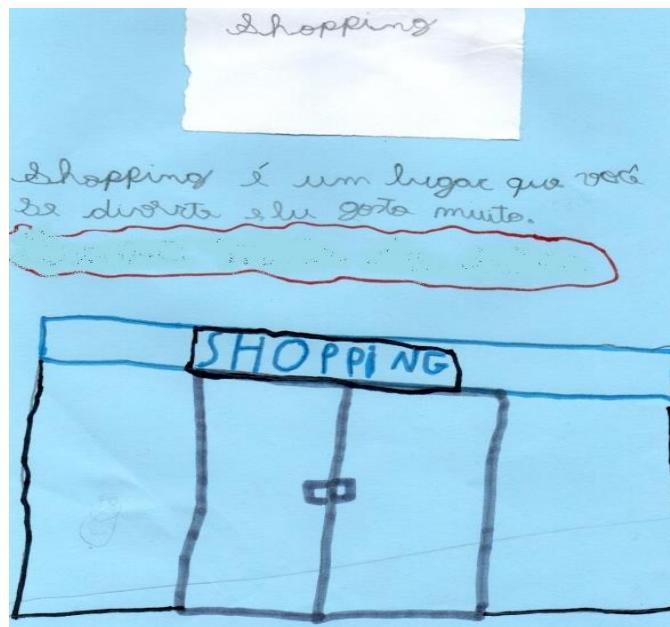 Shopping
Shopping é um lugar que você
se divirte e eu gosto muito.
SHOPPING